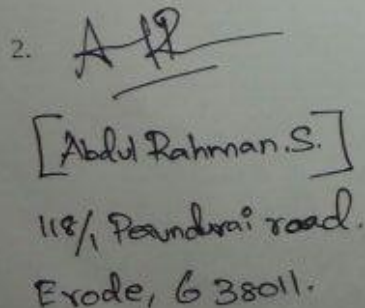 2.
[Abdul Rahman.S.]
118/1 Perundurai road.
Erode, 638011.